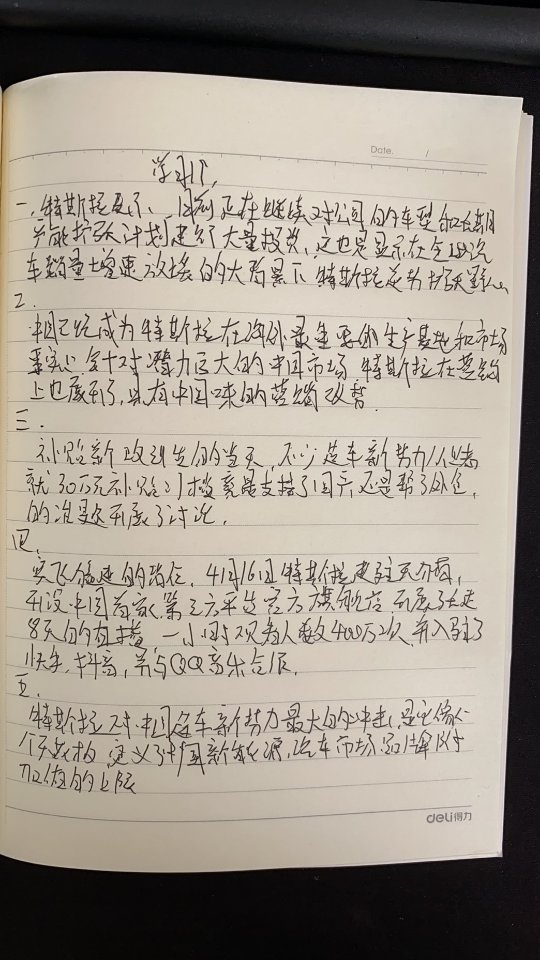 Date. /
学习
一、特斯拉表示、目前正在继续对公司的车型和长期
产能扩张计划进行大量投资,这也显示在全球汽
车销量增速放缓的大背景下 特斯拉逆势扩张
二、
中国已经成为特斯拉在海外最重要的生产基地和市场
针对潜力巨大的中国市场 特斯拉在营销
上也展开了,具有中国味的营销攻势
三、
补贴新政出生的当天,不少造车新势力
就30万元补贴门槛究竟是支持了国产还是帮了外企,
的次题开展了讨论,
四、
4月16日特斯拉进驻天猫,
开设中国首家第三方平台官方旗舰店 开展了长达
8天的直播,一小时观看人数400万次,并入驻了
快手,抖音,并与QQ音乐合作,
五、
特斯拉对中国造车新势力最大的冲击,是它像一
个天花板,定义了中国新能源,汽车市场品牌
价值的上限
deli得力